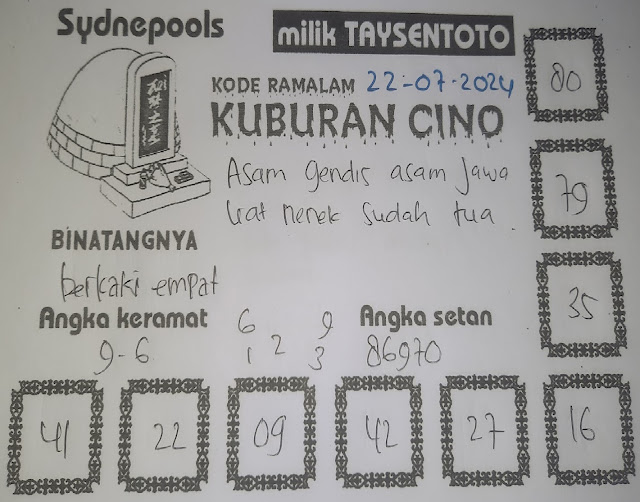 Sydnepools
milik TAYSENTOTO
KODE RAMALAM 22-07-2024
KUBURAN CINO
Asam gendis asam Jawa
Wat nenek sudah tua
BINATANGNYA
berkaki empat
Angka keramat
9-6
6 9
1 2 3
Angka setan
86970
80
79
35
41 22 09 42 27 16